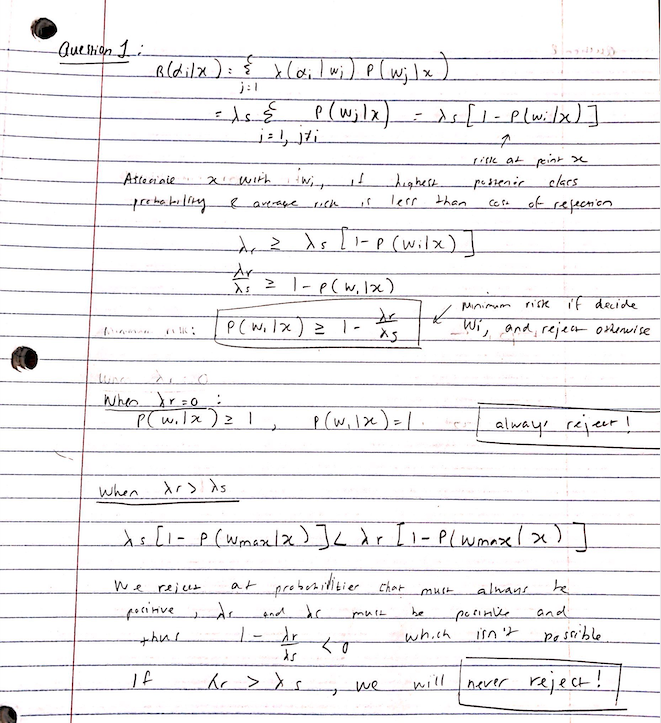 Question 1:
R(αi|x) = Σ λ(αi|wj) P(wj|x)
j=1
= λs Σ P(wj|x) = λs [1 - P(wi|x)]
j=1, j≠i
risk at point x
Associate x with wi, if highest posterior class
probability & average risk is less than cost of rejection
λr ≥ λs [1 - P(wi|x)]
λr/λs ≥ 1 - P(wi|x)
P(wi|x) ≥ 1 - λr/λs
Minimum risk if decide
wi, and reject otherwise
When λr=0 :
P(wi|x) ≥ 1 , P(wi|x)=1 always reject!
When λr > λs
λs [1 - P(wmax|x)] < λr [1 - P(wmax|x)]
We reject at probabilities that must always be
positive, λs and λs must be positive and
thus 1 - λr/λs < 0 which isn't possible
If λr > λs, we will never reject!